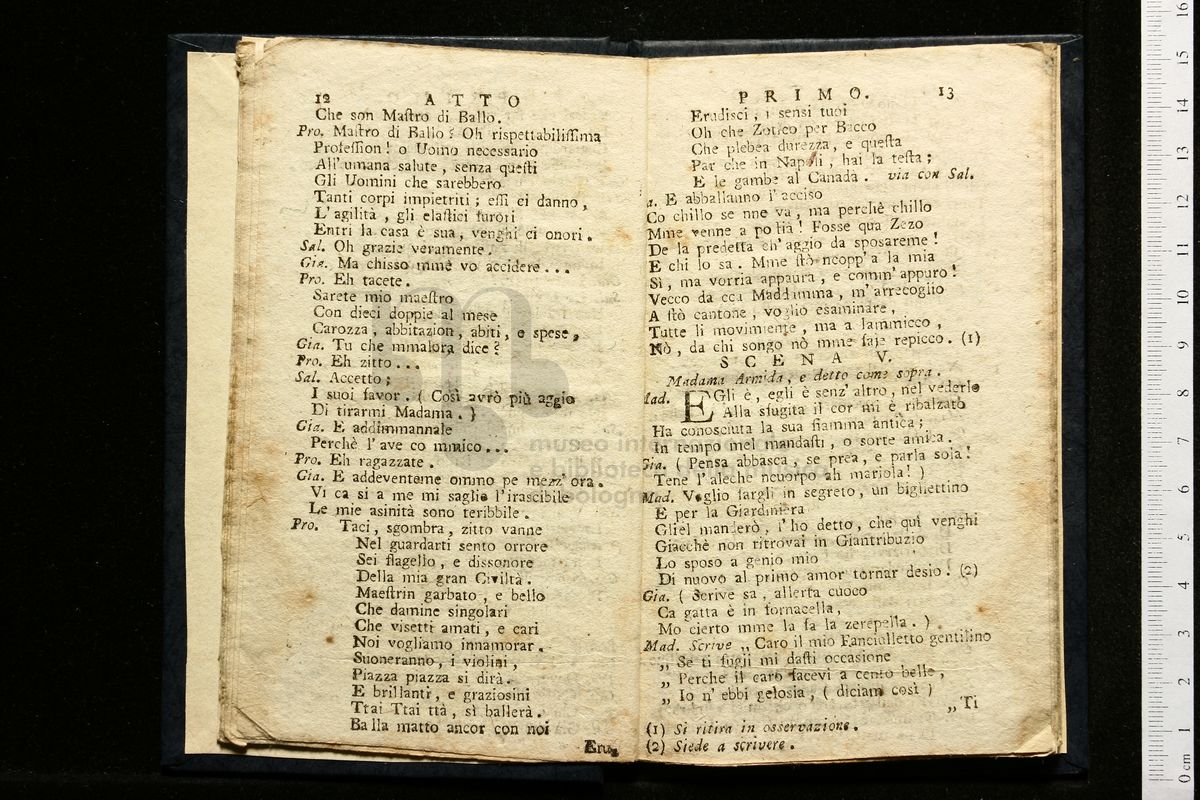 12 ATTO
Che son Maſtro di Ballo.
Pro. Maſtro di Ballo? Oh riſpettabiliſſima
Profeſſion! o Uomo neceſſario
All'umana salute, senza queſti
Gli Uomini che sarebbero
Tanti corpi impietriti; eſſi ci danno,
L'agilità, gli elaſtici furori
Entri la casa è sua, venghi ci onori.
Sal. Oh grazie veramente.
Gia. Ma chisso mme vo accidere...
Pro. Eh tacete.
Sarete mio maeſtro
Con dieci doppie al mese
Carozza, abbitazion, abiti, e spese,
Gia. Tu che mmalora dice?
Pro. Eh zitto...
Sal. Accetto;
I suoi favor. ( Così avrò più aggio
Di tirarmi Madama. )
Gia. E addimmannale
Perchè l'ave co mmico...
Pro. Eh ragazzate.
Gia. E addeventeme ommo pe mezz'ora.
Vi ca si a me mi saglie l'irascibile
Le mie asinità sono teribbile.
Pro. Taci, sgombra, zitto vanne
Nel guardarti sento orrore
Sei flagello, e dissonore
Della mia gran Civiltà.
Maeſtrin garbato, e bello
Che damine singolari
Che visetti amati, e cari
Noi vogliamo innamorar.
Suoneranno, i violini,
Piazza piazza si dirà.
E brillanti, e graziosini
Ttai Ttai ttà, sì ballerà.
Balla matto ancor con noi
Eru-
PRIMO. 13
Erudisci, i sensi tuoi
Oh che Zotico per Bacco
Che plebea durezza, e queſta
Par che in Napoli, hai la teſta;
E le gambe al Canadà. via con Sal.
a. E abballanno l'acciso
Co chillo se nne va, ma perchè chillo
Mme venne a pottà! Fosse qua Zezo
De la predetta ch'aggio da sposareme!
E chi lo sa. Mme ſtò ncopp'a la mia
Sì, ma vorria appaura, e comm'appuro!
Vecco da cca Maddamma, m'arrecoglio
A ſtò cantone, voglio esaminare,
Tutte li movimiente, ma a lammicco,
Nò, da chi songo nò mme faje repicco. (1)
SCENA V.
Madama Armida, e detto come sopra.
Mad. EGli è, egli è senz'altro, nel vederlo
Alla sfugita il cor mi è ribalzato
Ha conosciuta la sua fiamma antica;
In tempo mel mandaſti, o sorte amica.
Gia. ( Pensa abbasca, se prea, e parla sola!
Tene l'aleche ncuorpo ah mariola! )
Mad. Voglio fargli in segreto, un bigliettino
E per la Giardiniera
Gliel manderò, l'ho detto, che quì venghi
Giacchè non ritrovai in Giantribuzio
Lo sposo a genio mio
Di nuovo al primo amor tornar desio. (2)
Gia. ( Scrive sa, allerta cuoco
Ca gatta è in fornacella,
Mo cierto mme la fa la zerepella. )
Mad. Scrive „ Caro il mio Fanciulletto gentilino
„ Se ti fugii mi daſti occasione
„ Perche il caro facevi a cento belle,
„ Io n'ebbi gelosia, ( diciam così )
„ Ti
(1) Si ritira in osservazione.
(2) Siede a scrivere.